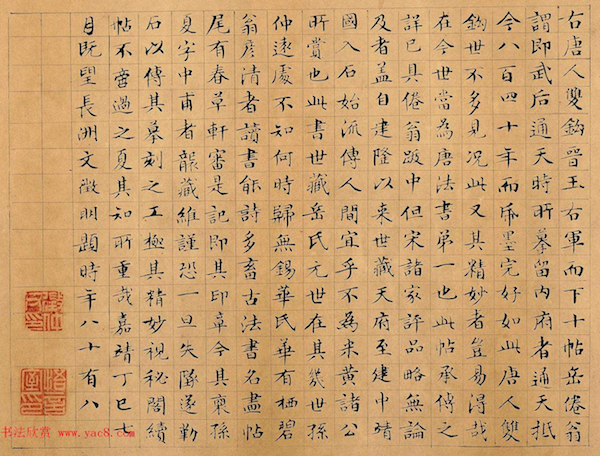 右唐人雙鈎晉王右軍而下十帖岳倦翁
謂即武后通天時所摹留内府者通天抵
今八百四十年而帋墨完好如此唐人雙
鈎世不多見况此又其精妙者豈易得哉
在今世當為唐法書第一也此帖承傳之
詳已具倦翁跋中但宋諸家評品略無論
及者蓋自建隆以來世藏天府至建中靖
國入石始流傳人間宜乎不為米黄諸公
所賞也此書世藏岳氏元世在其幾世孫
仲遠處不知何時歸無錫華氏華有栖碧
翁彦清者讀書能詩多畜古法書名畫帖
尾有春草軒審是記即其印章今其裔孫
夏字中甫者龍藏維謹恐一旦失隊遂勒
石以傳其摹刻之工極其精妙視秘閣續
帖不啻過之夏其知所重哉嘉靖丁巳七
月既望長洲文徵明題時年八十有八
书法欣赏 www.yac8.com